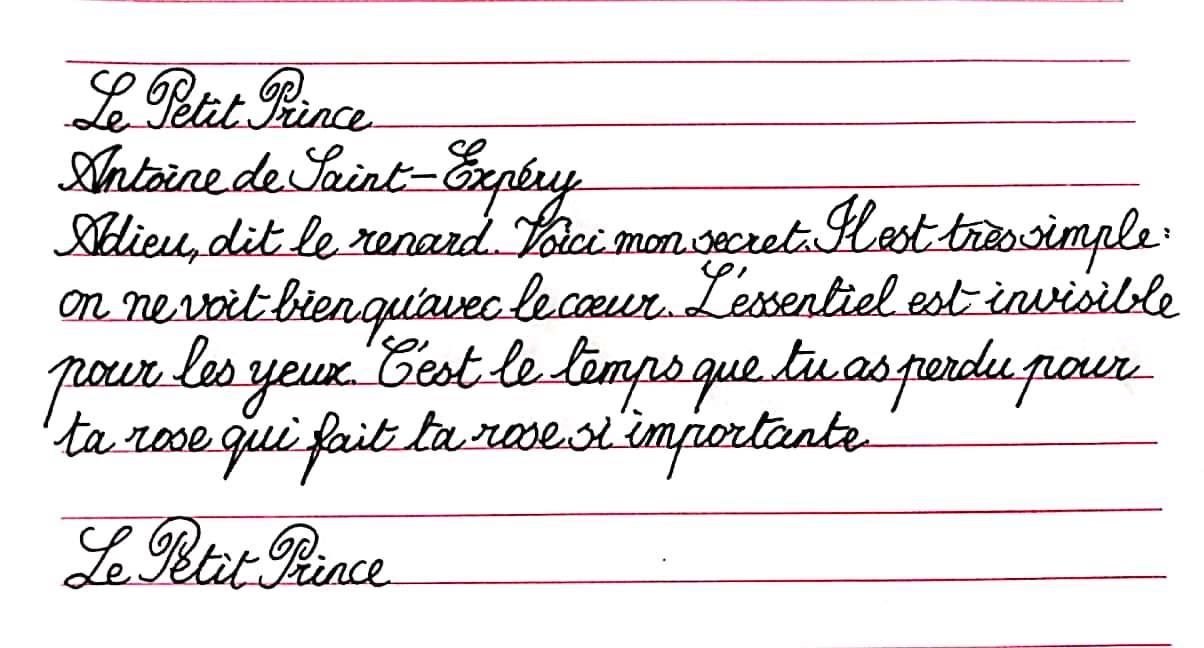 Le Petit Prince
Antoine de Saint-Expéry
Adieu, dit le renard. Voici mon secret. Il est très simple:
on ne voit bien qu'avec le cœur. L'essentiel est invisible
pour les yeux. C'est le temps que tu as perdu pour
ta rose qui fait ta rose si importante
Le Petit Prince